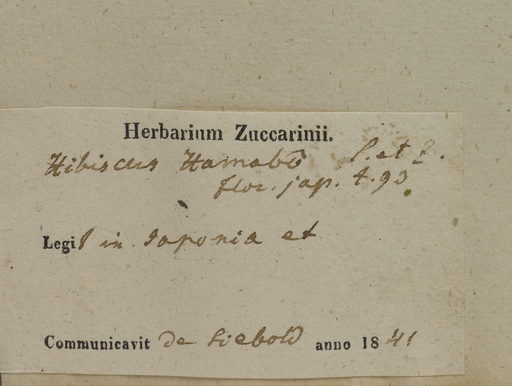 Herbarium Zuccarinii.
Hibiscus Hamabo S. et Z.
flor. jap. t. 93.
Legit in Japonia et
Communicavit de Siebold anno 1841